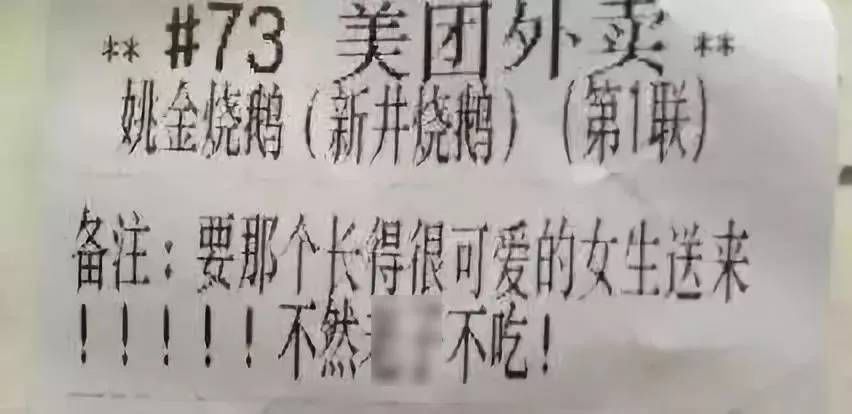 ** #73 美团外卖 **
姚金烧鹅（新井烧鹅）（第1联）
备注：要那个长得很可爱的女生送来
！！！！！不然 不吃！